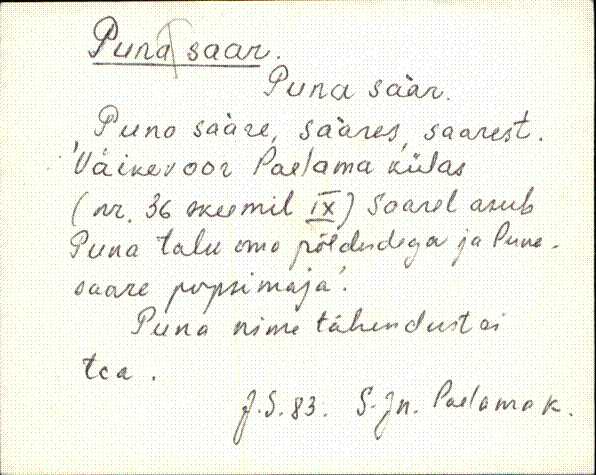 Puna saar.
Puna sààr.
Puno sààre, sààres, saarest.
'Väikevoor Paelama külas
(nr. 36 skeemil IX) Saarel asub
Puna talu oma põldudega ja Puna-
saare popsimaja'.
Puna nime tähendust ei
tea.
J.S. 83. S-Jn. Paelama k.